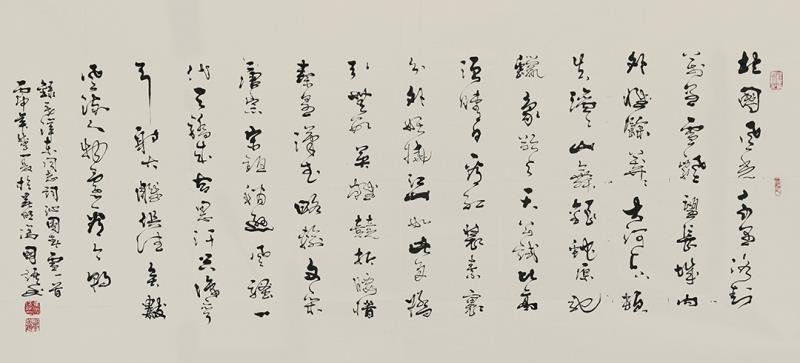 北國風光千里冰封
萬里雪飄望長城內
外惟餘莽莽大河上下頓
失滔滔山舞銀蛇原馳
蠟象欲與天公試比高
須晴日看紅裝素裹
分外妖嬈江山如此多嬌
引無數英雄競折腰惜
秦皇漢武略輸文采
唐宗宋祖稍遜風騷一
代天驕成吉思汗只識彎
弓射大鵰俱往矣數
風流人物還看今朝
錄毛澤東同志詞沁園春雪一首
丙申年夏於馮國語書